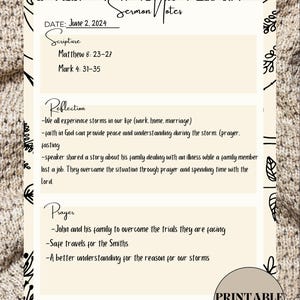 Sermon Notes
DATE: June 2, 2024
Scripture
Matthew 8: 23-27
Mark 4: 31-35
Reflection
-We all experience storms in our life (work, home, marriage)
-faith in God can provide peace and understanding during the storm. (prayer,
fasting
-speaker shared a story about his family dealing with an illness while a family member
lost a job. They overcame the situation through prayer and spending time with the
lord
Prayer
-John and his family to overcome the trials they are facing
-Safe travels for the Smiths
-A better understanding for the reason for our storms
PRINTABLE